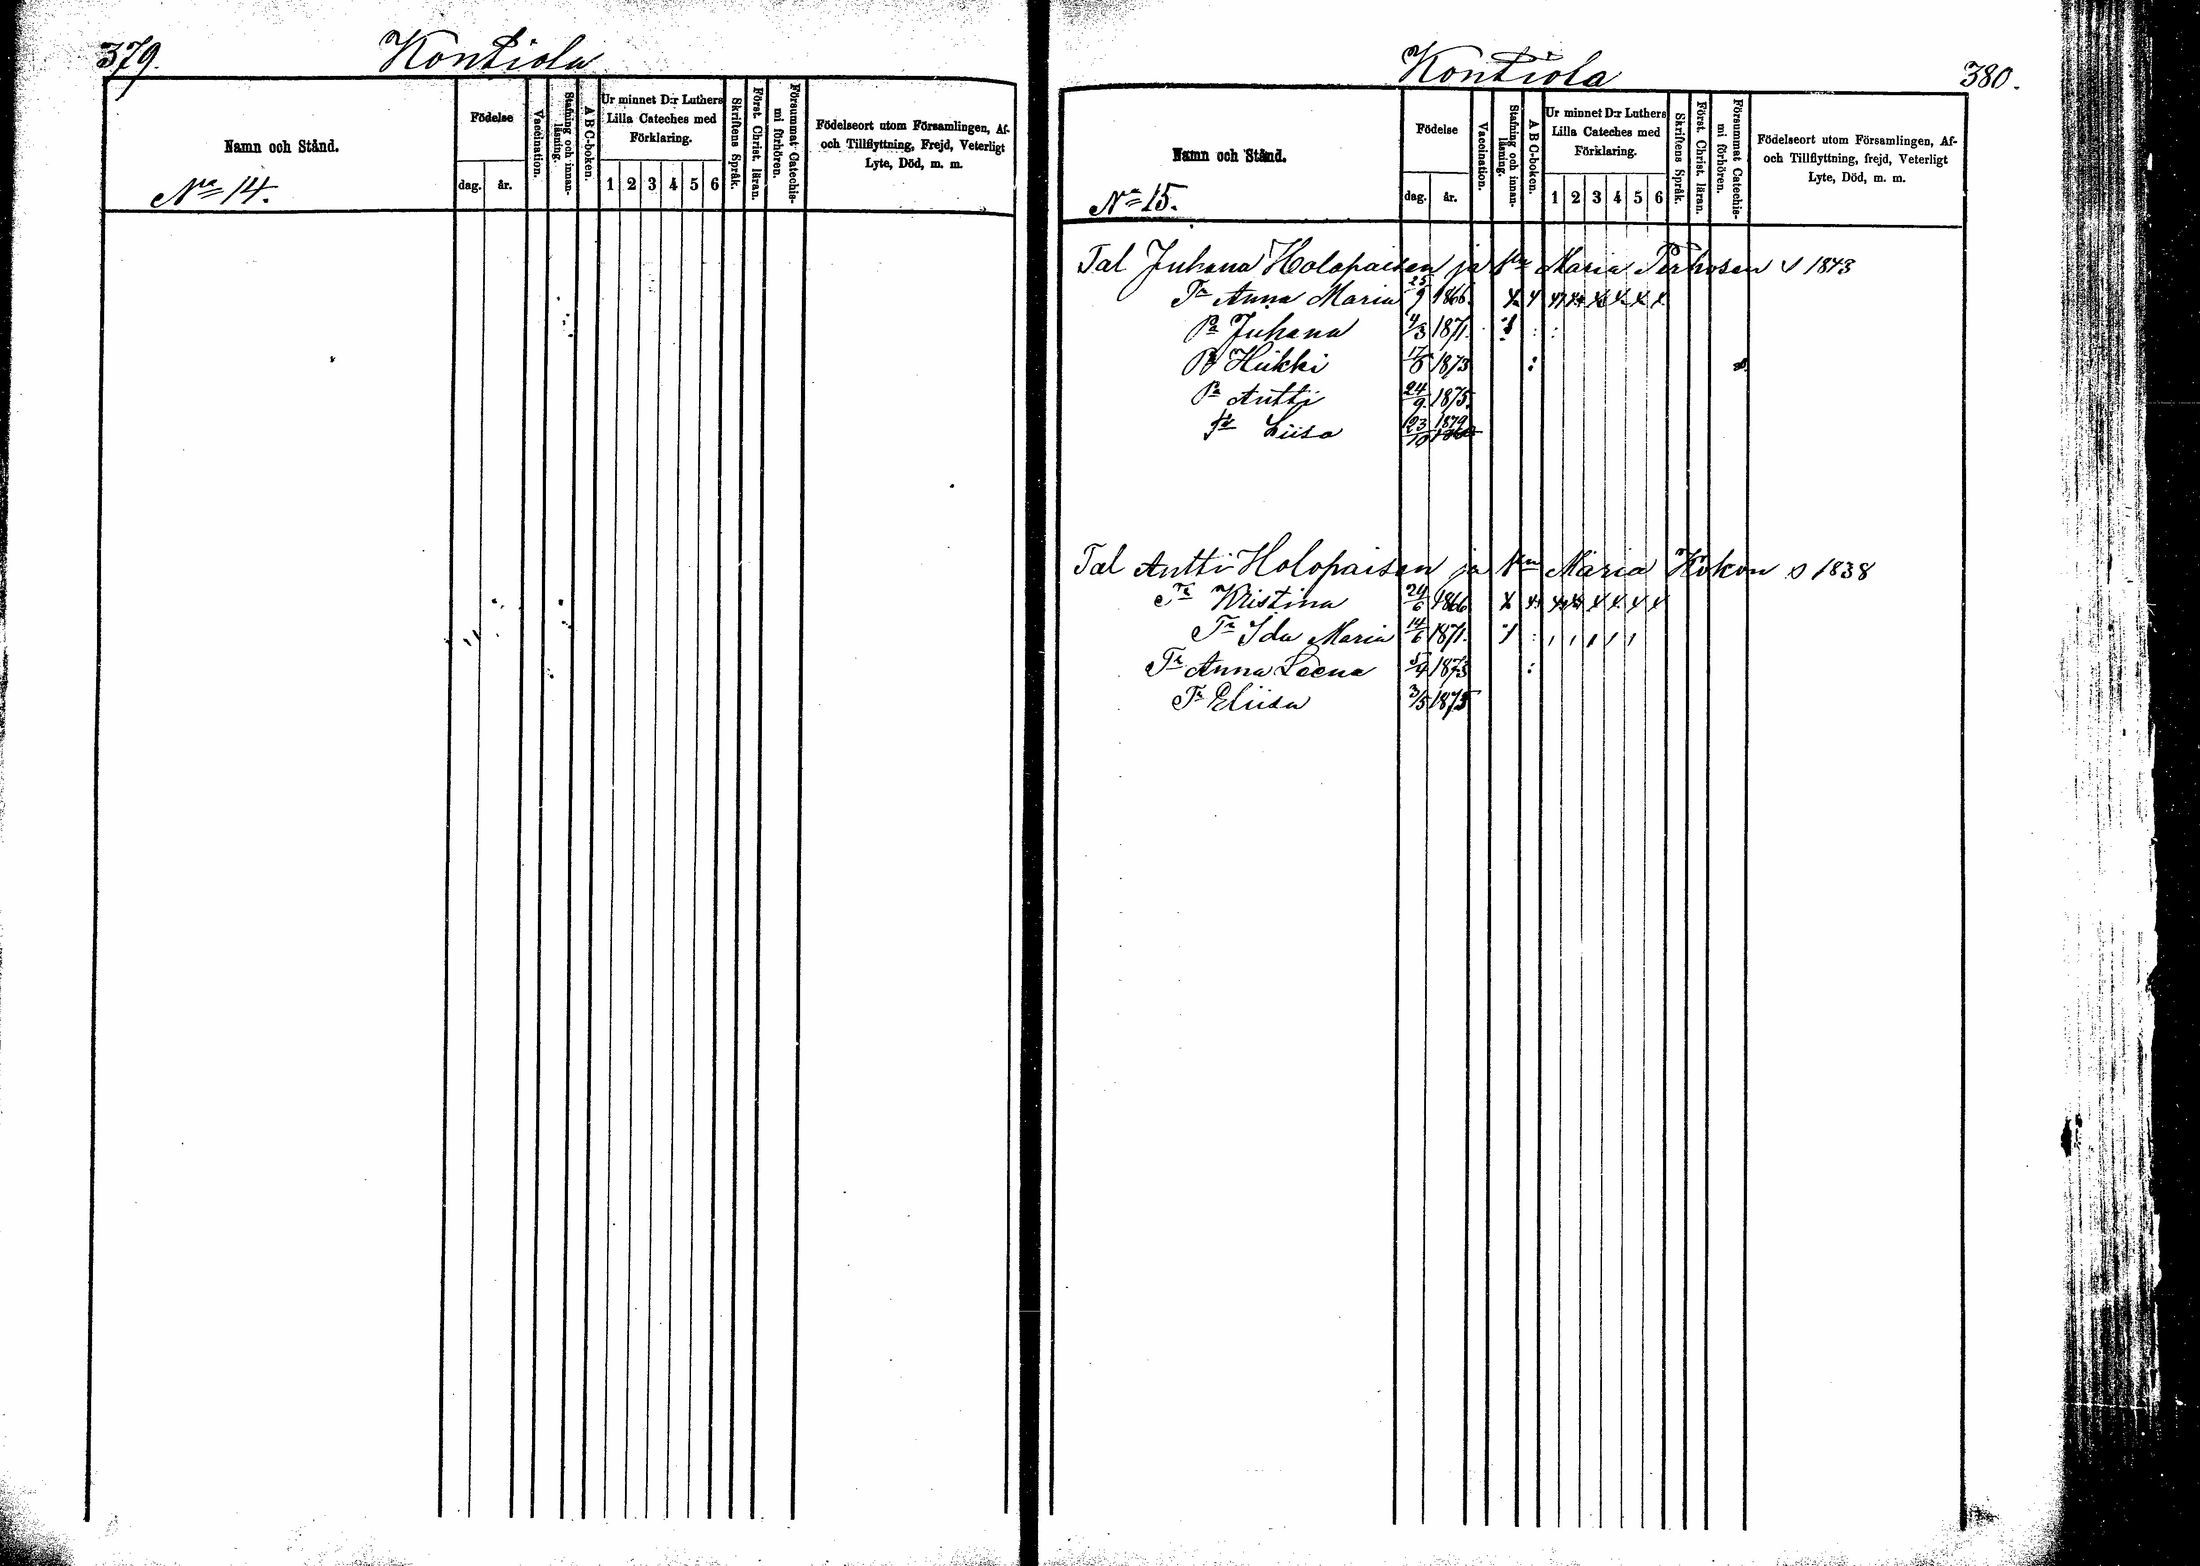 379. Kontiola
Namn och Stånd.
No 14.
Födelse
dag. år.
Vaccination.
Stafning och innanläsning.
A B C-boken.
Ur minnet D:r Luthers
Lilla Cateches med
Förklaring.
1 2 3 4 5 6
Skriftens Språk.
Först. Christ. läran.
Försummat Catechismi förhören.
Födelseort utom Församlingen, Af-
och Tillflyttning, Frejd, Veterligt
Lyte, Död, m. m.
Kontiola 380.
Namn och Stånd.
No 15.
Födelse
dag. år.
Vaccination.
Stafning och innanläsning.
A B C-boken.
Ur minnet D:r Luthers
Lilla Cateches med
Förklaring.
1 2 3 4 5 6
Skriftens Språk.
Först. Christ. läran.
Försummat Catechismi förhören.
Födelseort utom Församlingen, Af-
och Tillflyttning, frejd, Veterligt
Lyte, Död, m. m.
Tal Juhana Holopaisen ja Maria Terhosen s 1843
Tr Anna Maria 25/9 1866.
Pa Juhana 4/3 1871.
Heikki 1873
Pa Antti 24/9 1875.
Liisa 23/10 1879
Tal Antti Holopaisen ja Maria Kokon s 1838
Tr Kristina 24/6 1866
Tr Ida Maria 14/6 1871.
Tr Anna Leena 5/4 1873
Tr Eliisa 3/5 1875